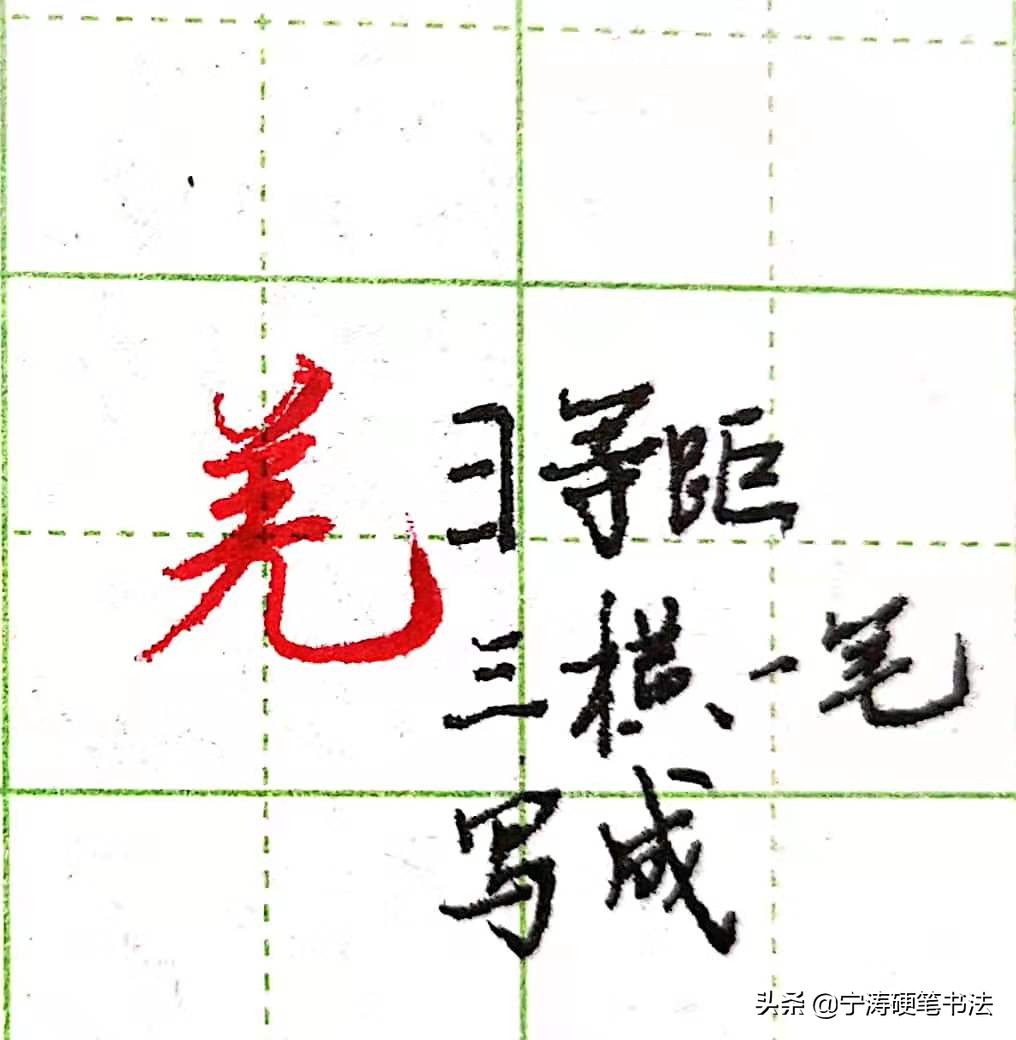 羌 等距
三横、一笔
写成
头条 @宁涛硬笔书法